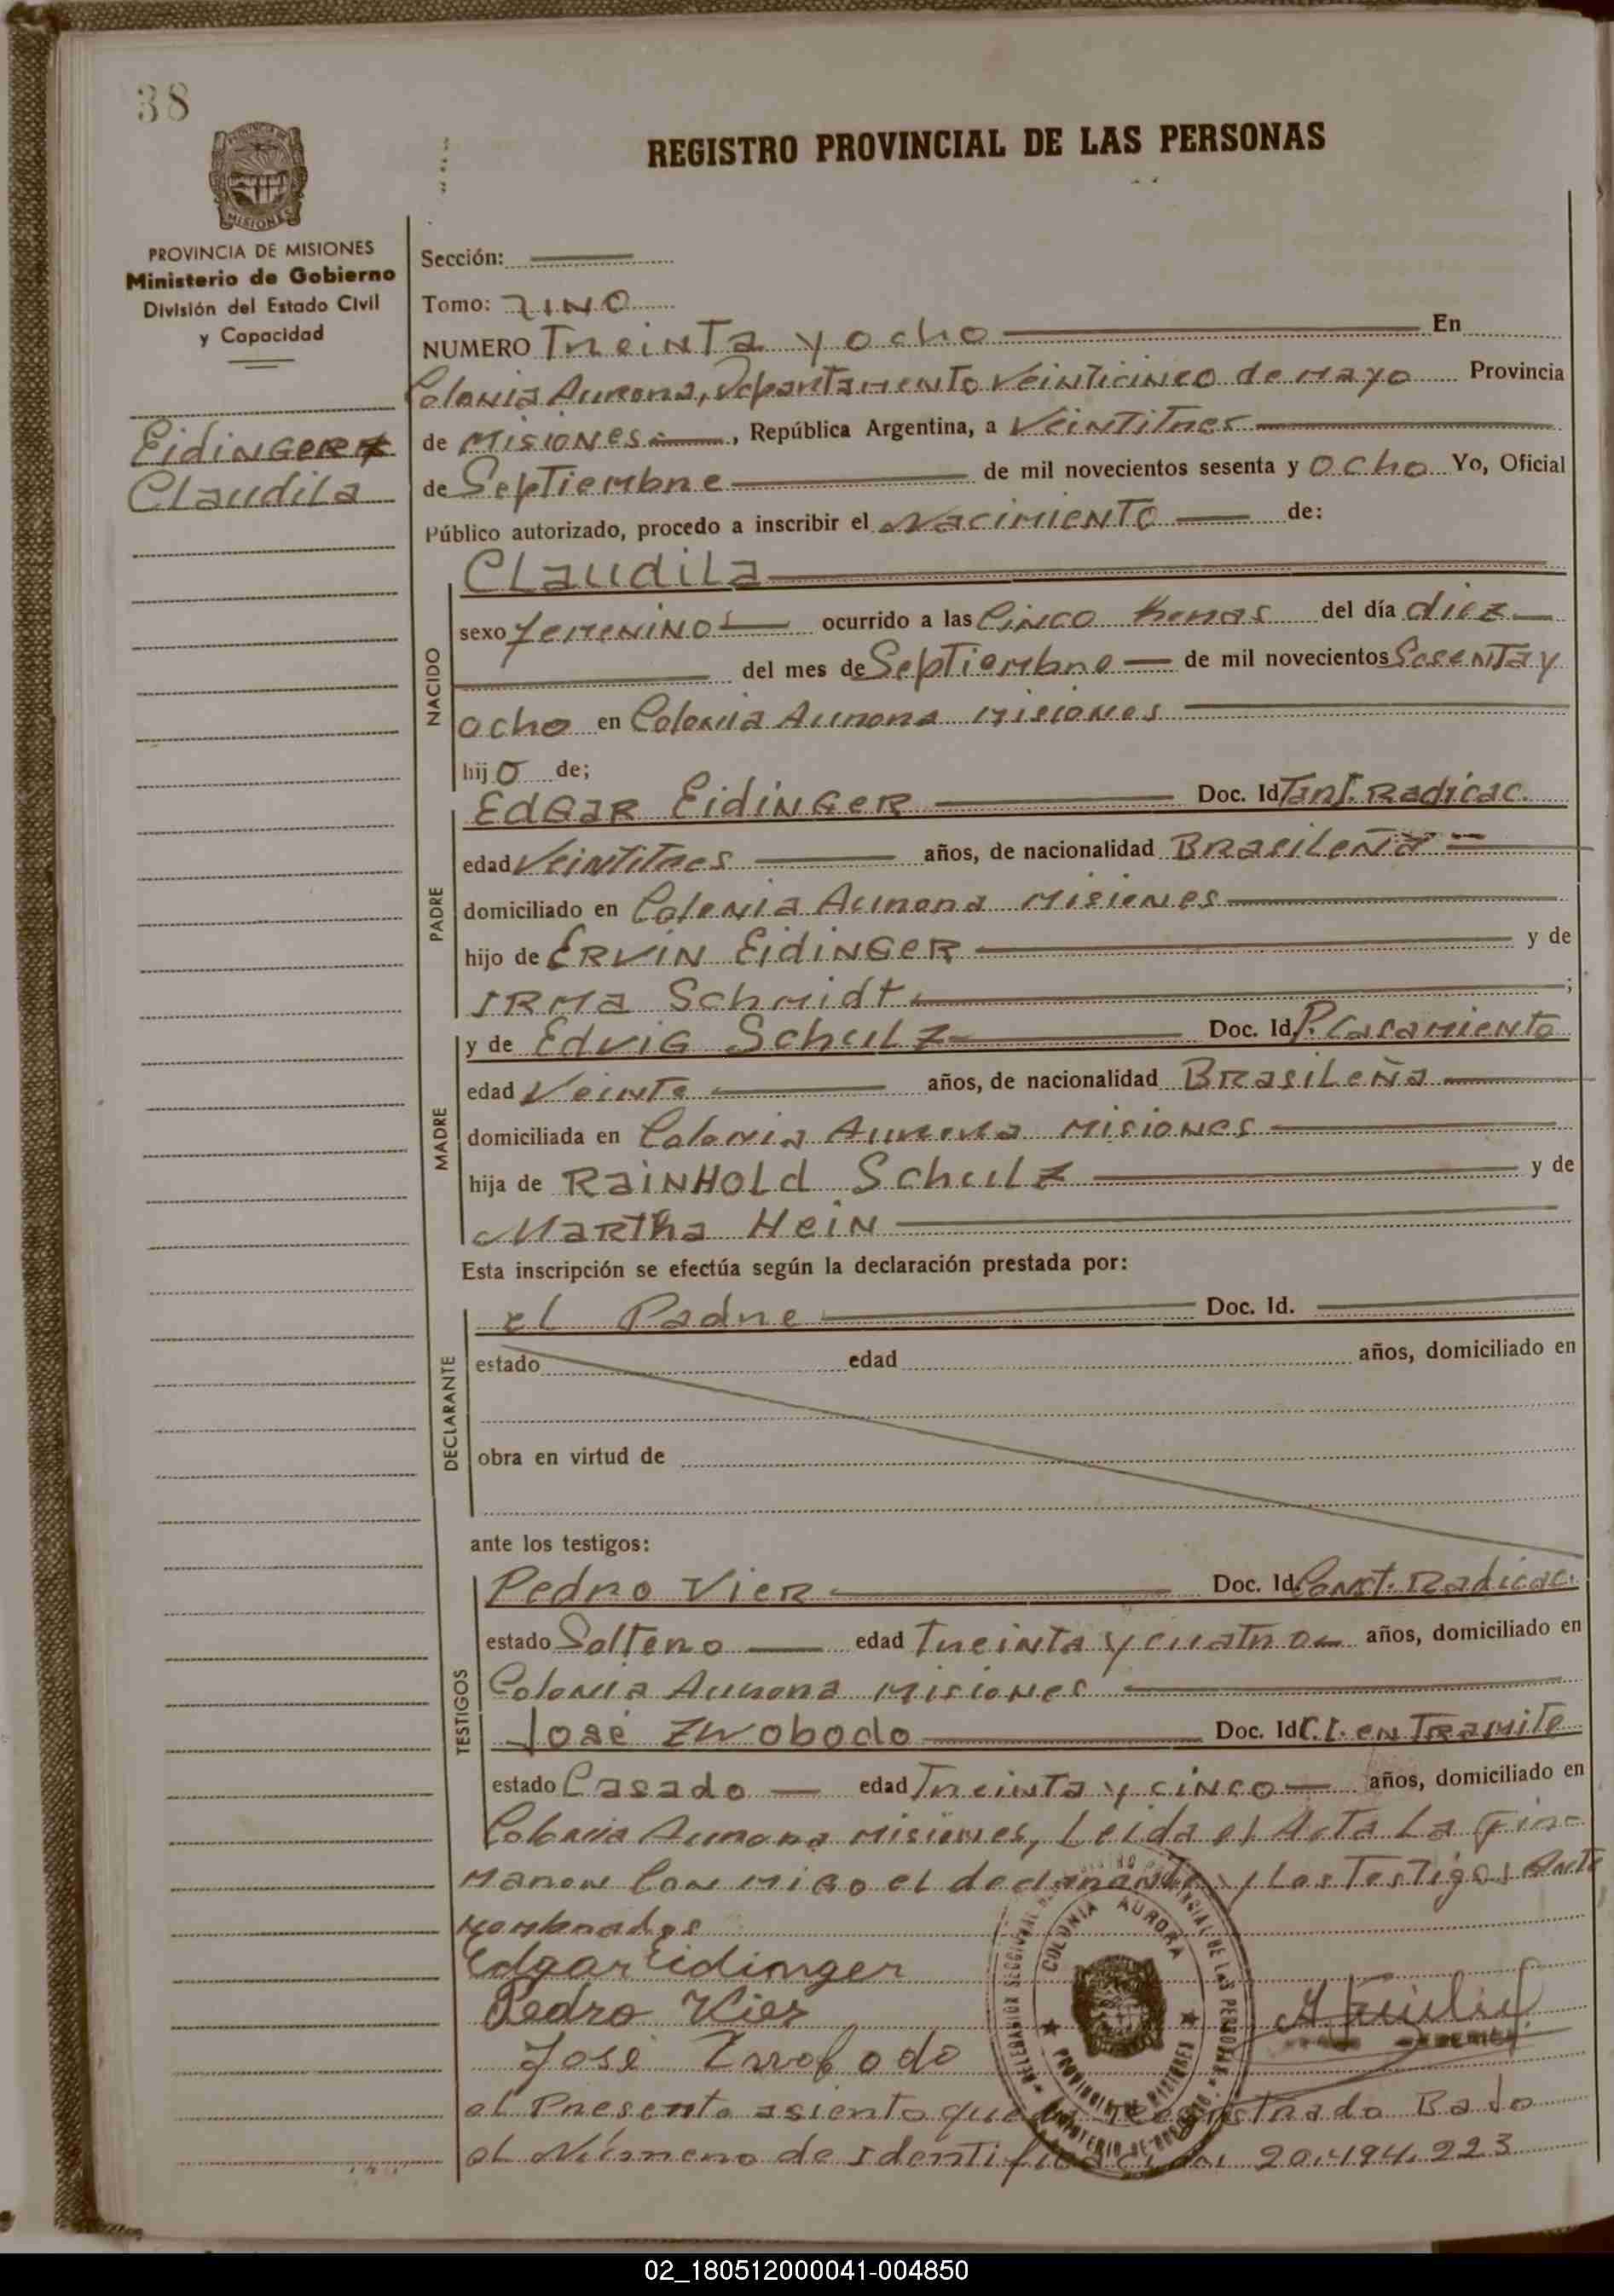 38
REGISTRO PROVINCIAL DE LAS PERSONAS
MISIONES
PROVINCIA DE MISIONES
Ministerio de Gobierno
División del Estado Civil
y Capacidad
Eidinger
Claudila
Sección:
Tomo: UNO
NUMERO Treinta y ocho En
Colonia Aurora, Departamento Veinticinco de mayo Provincia
de Misiones, República Argentina, a Veintitres
de Septiembre de mil novecientos sesenta y ocho Yo, Oficial
Público autorizado, procedo a inscribir el Nacimiento de:
NACIDO
Claudila
sexo femenino ocurrido a las Cinco horas del día diez
del mes de Septiembre de mil novecientos Sesenta y
ocho en Colonia Aurora Misiones
hijo de;
PADRE
Edgar Eidinger Doc. Id Tarj. Radicac.
edad Veintitres años, de nacionalidad Brasileña
domiciliado en Colonia Aurora Misiones
hijo de Ervin Eidinger y de
Irma Schmidt ;
MADRE
y de Edvig Schulz Doc. Id P. Casamiento
edad Veinte años, de nacionalidad Brasileña
domiciliada en Colonia Aurora Misiones
hija de Rainhold Schulz y de
Martha Hein
Esta inscripción se efectúa según la declaración prestada por:
DECLARANTE
el Padre Doc. Id.
estado edad años, domiciliado en
obra en virtud de
ante los testigos:
TESTIGOS
Pedro Vier Doc. Id. Const. Radicac.
estado Soltero edad Treinta y cuatro años, domiciliado en
Colonia Aurora Misiones
José Zwobodo Doc. Id C.I. en Tramite
estado Casado edad Treinta y cinco años, domiciliado en
Colonia Aurora Misiones, Leida el Acta La Fir=
maron Con migo el declarante y Los Testigos Ante
nombrados
Edgar Eidinger
Pedro Vier
José Zwobodo
COLONIA AURORA
PROVINCIA DE MISIONES
el Presente asiento queda registrado Bajo
el Número de Identificación 20.494.223
02_180512000041-004850